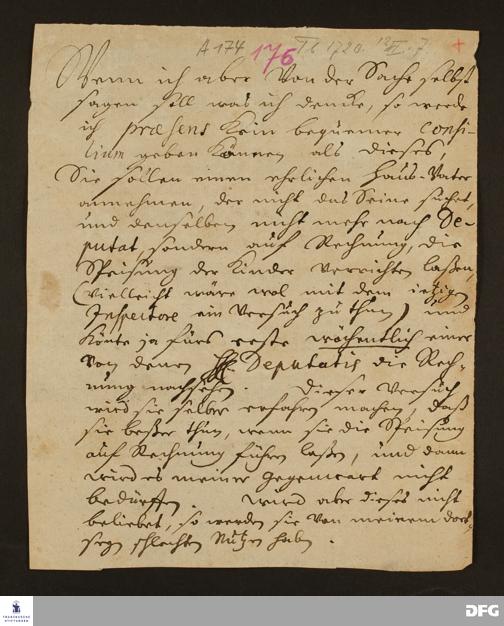 A 174 176 Tb 1720. 12 VI. 7. +
Wenn ich aber von der Sache selbst
sagen soll was ich dencke, so werde
ich præsens kein bequemer Consi-
lium geben können als dieses
Sie sollen einen ehrlichen Haus-Vater
annehmen, der nicht das Seine suchet,
und denselben nicht mehr nach De-
putat, sondern auf Rechnung, die
Speisung der Kinder verrichten laßen,
(vielleicht wäre wol mit dem ietzigen
Inspectore ein Versuch zu thun) und
könte ja fürs erste wöchentlich einer
von denen Hh. Deputatis die Rech-
nung nachsehen. Dieser Versuch
wird sie selber erfahren machen, daß
sie beßer thun, wenn sie die Speisung
auf Rechnung führen laßen, und dann
wird es meiner Gegenwart nicht
bedürffen. Wird aber dieses nicht
beliebet, so werden sie von meinem dort
seyn schlechten Nutzen haben.
FRANCKESCHE STIFTUNGEN
DFG